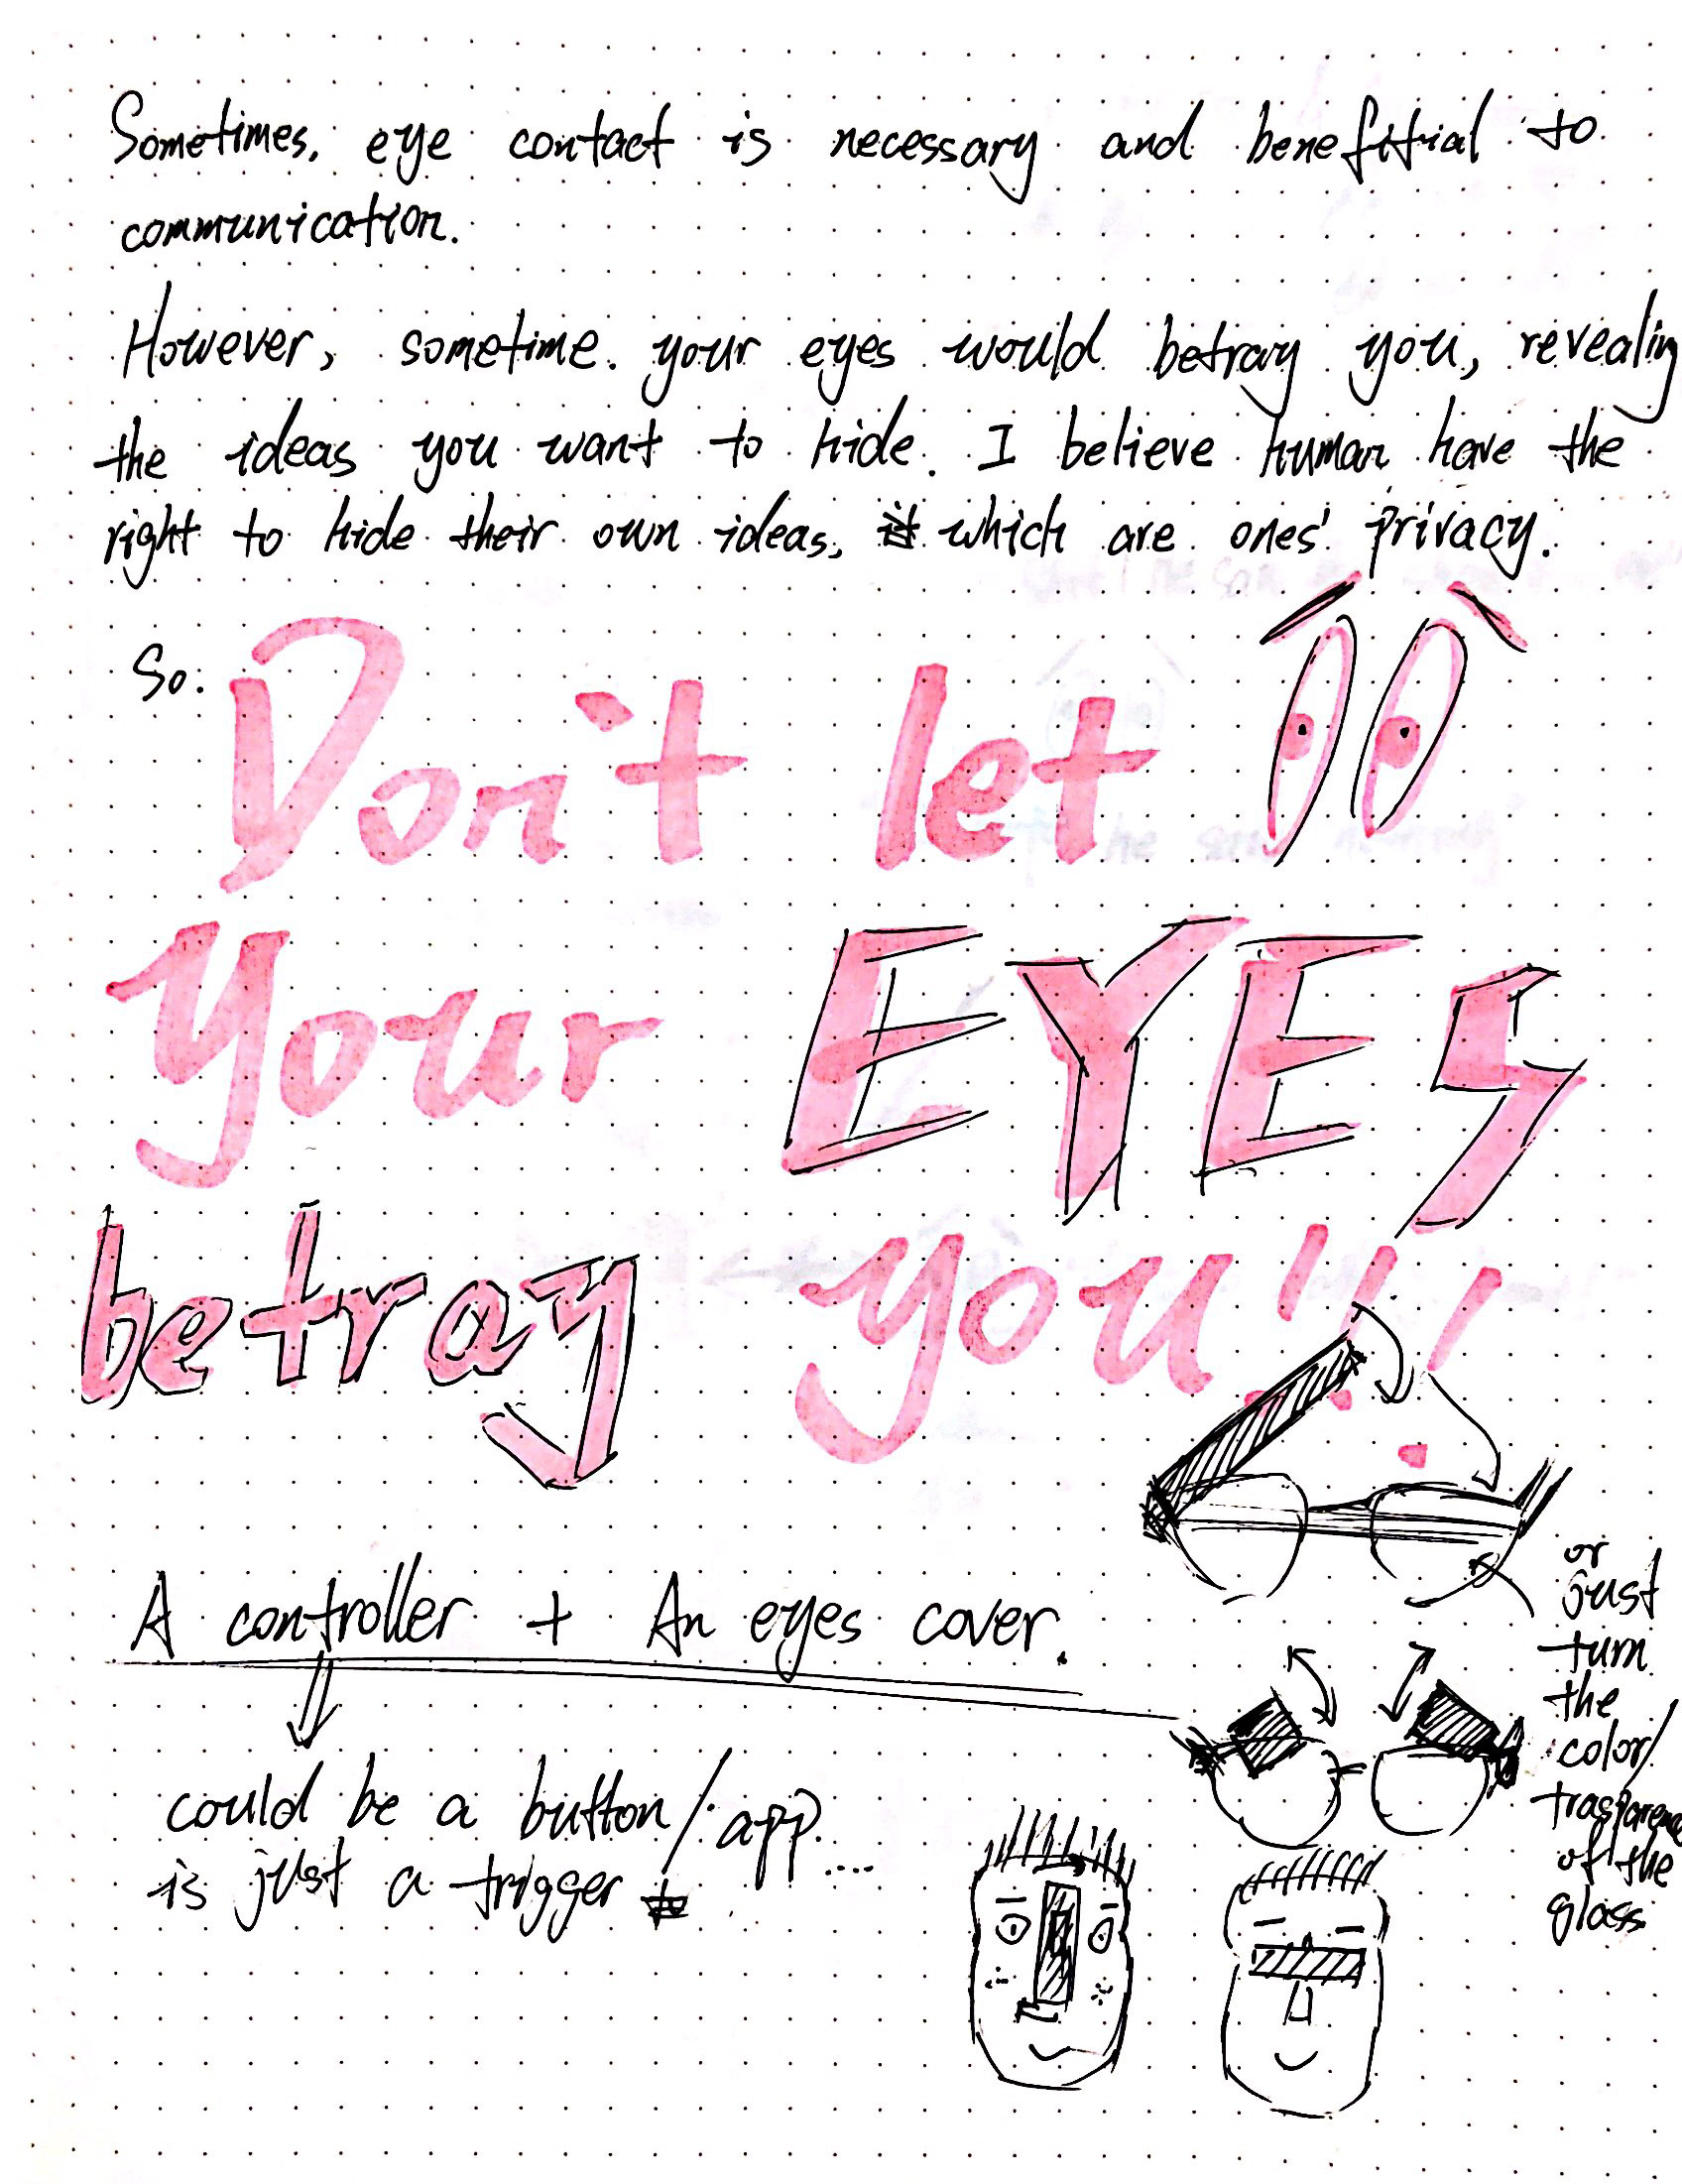 Sometimes, eye contact is necessary and benefitial to
communication.
However, sometime. your eyes would betray you, revealing
the ideas you want to hide. I believe human have the
right to hide their own ideas, which are ones' privacy.
So:
Don't let
Your EYES
betray you!!!
A controller + An eyes cover.
could be a button/app....
is just a trigger
or
just
turn
the
color/
trasparence
of the
glass